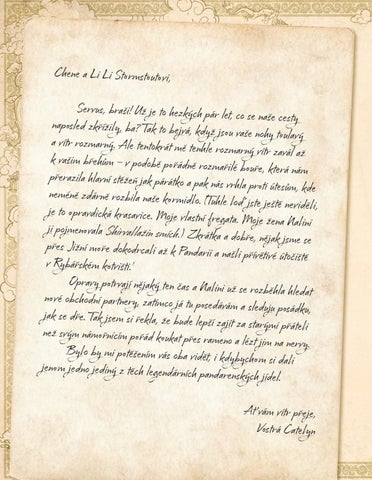 Chene a Li Li Stormstoutovi,
Servus, braši! Už je to hezkých pár let, co se naše cesty
naposled zkřížily, ba? Tak to bejvá, když jsou vaše nohy toulavý
a vítr rozmarný. Ale tentokrát mě tenhle rozmarný vítr zavál až
k vašim břehům – v podobě pořádně rozmařilé bouře, která nám
přerazila hlavní stěžeň jak párátko a pak nás vrhla proti útesům, kde
neméně zdárně rozbila naše kormidlo. (Tuhle loď jste ještě neviděli,
je to opravdická krasavice. Moje vlastní fregata. Moje žena Nalini
ji pojmenovala Shirvallázin smích.) Zkrátka a dobře, nějak jsme se
přes Jižní moře dokodrcali až k Pandarii a našli přívětivé útočiště
v Rybářském kotvišti.
Opravy potrvají nějaký ten čas a Nalini už se rozběhla hledat
nové obchodní partnery, zatímco já tu posedávám a sleduju posádku,
jak se dře. Tak jsem si řekla, že bude lepší zajít za starými přáteli
než svým námořnicím pořád koukat přes rameno a lézt jim na nervy.
Bylo by mi potěšením vás oba vidět, i kdybychom si dali
jenom jedno jediný z těch legendárních pandarenských jídel.
Ať vám vítr přeje,
Vostrá Catelyn